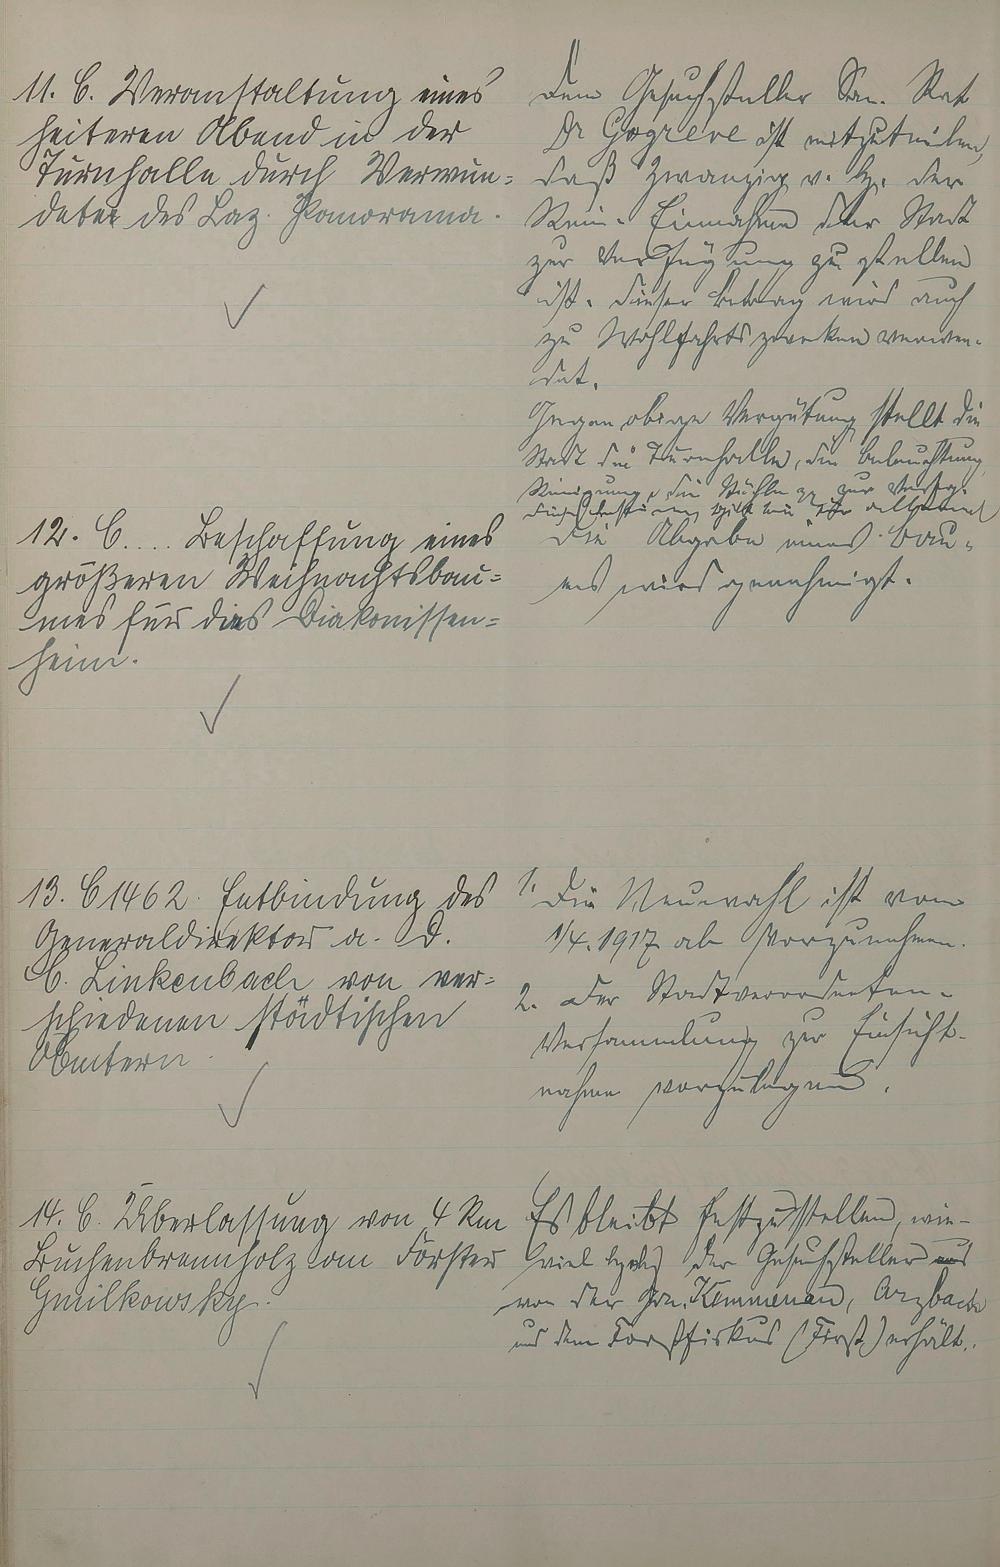 11. C. Veranstaltung eines
heiteren Abend in der
Turnhalle durch Verwun-
deter des Laz. Panorama.
Dem Gesuchsteller San. Rat
Dr Gogreve ist mitzuteilen,
daß Zwanzig v. H. der
Rein-Einnahme der Stadt
zur Verfügung zu stellen
ist. Dieser Betrag wird auch
zu Wohlfahrtszwecken verwen-
det.
Gegen obige Vergütung stellt die
Stadt die Turnhalle, die Beleuchtung,
Reinigung, die Stühle pp zur Verfüg.
gilt
12. C.... Beschaffung eines
größeren Weihnachtsbau-
mes für das Diakonissen-
heim.
Die Abgabe eines Bau-
mes wird genehmigt.
13. C 1462. Entbindung des
Generaldirektor a. D.
C. Linkenbach von ver-
schiedenen städtischen
Ämtern.
1. Die Neuwahl ist vom
1/4. 1917 ab vorzunehmen.
2. Der Stadtverordneten-
Versammlung zur Einsicht-
nahme vorzulegen.
14. C. Überlassung von 4 Rm
Buchenbrennholz am Förster
Gmilkowsky.
Es bleibt festzustellen, wie-
viel der Gesuchsteller
von der Gem. Kemmenau, Arzbach
und dem Forstfiskus (Forst) erhält.